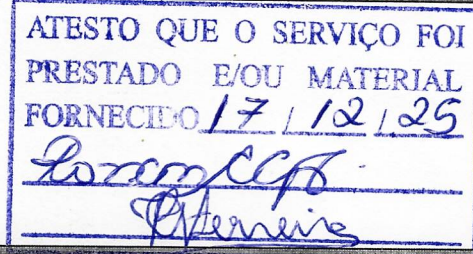 ATESTO QUE O SERVIÇO FOI
PRESTADO E/OU MATERIAL
FORNECIDO 17 / 12 / 25